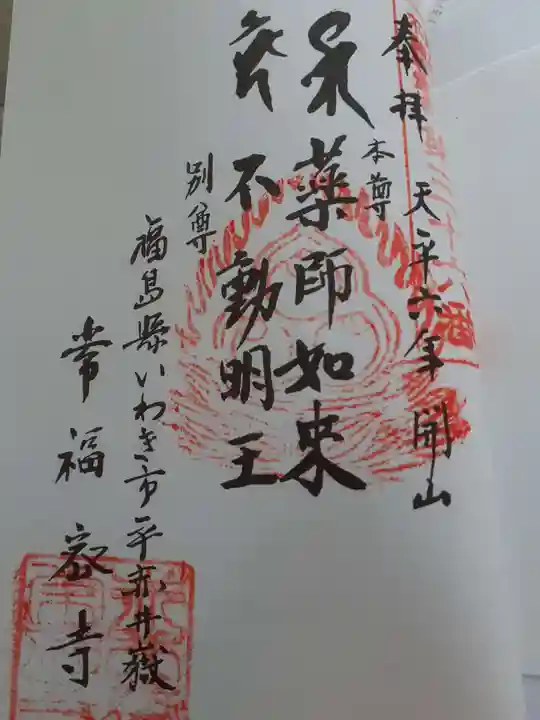 奉拝 天平六年開山
本尊
薬師如来
不動明王
別尊
福島県いわき市平赤井嶽
常福寺